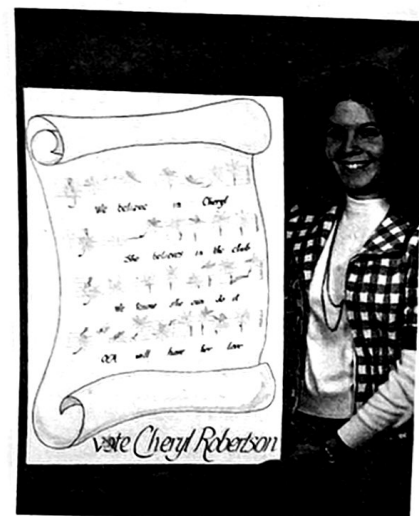 We believe in Cheryl
She believes in the club
We know she can do it
OEA will have her love
vote Cheryl Robertson